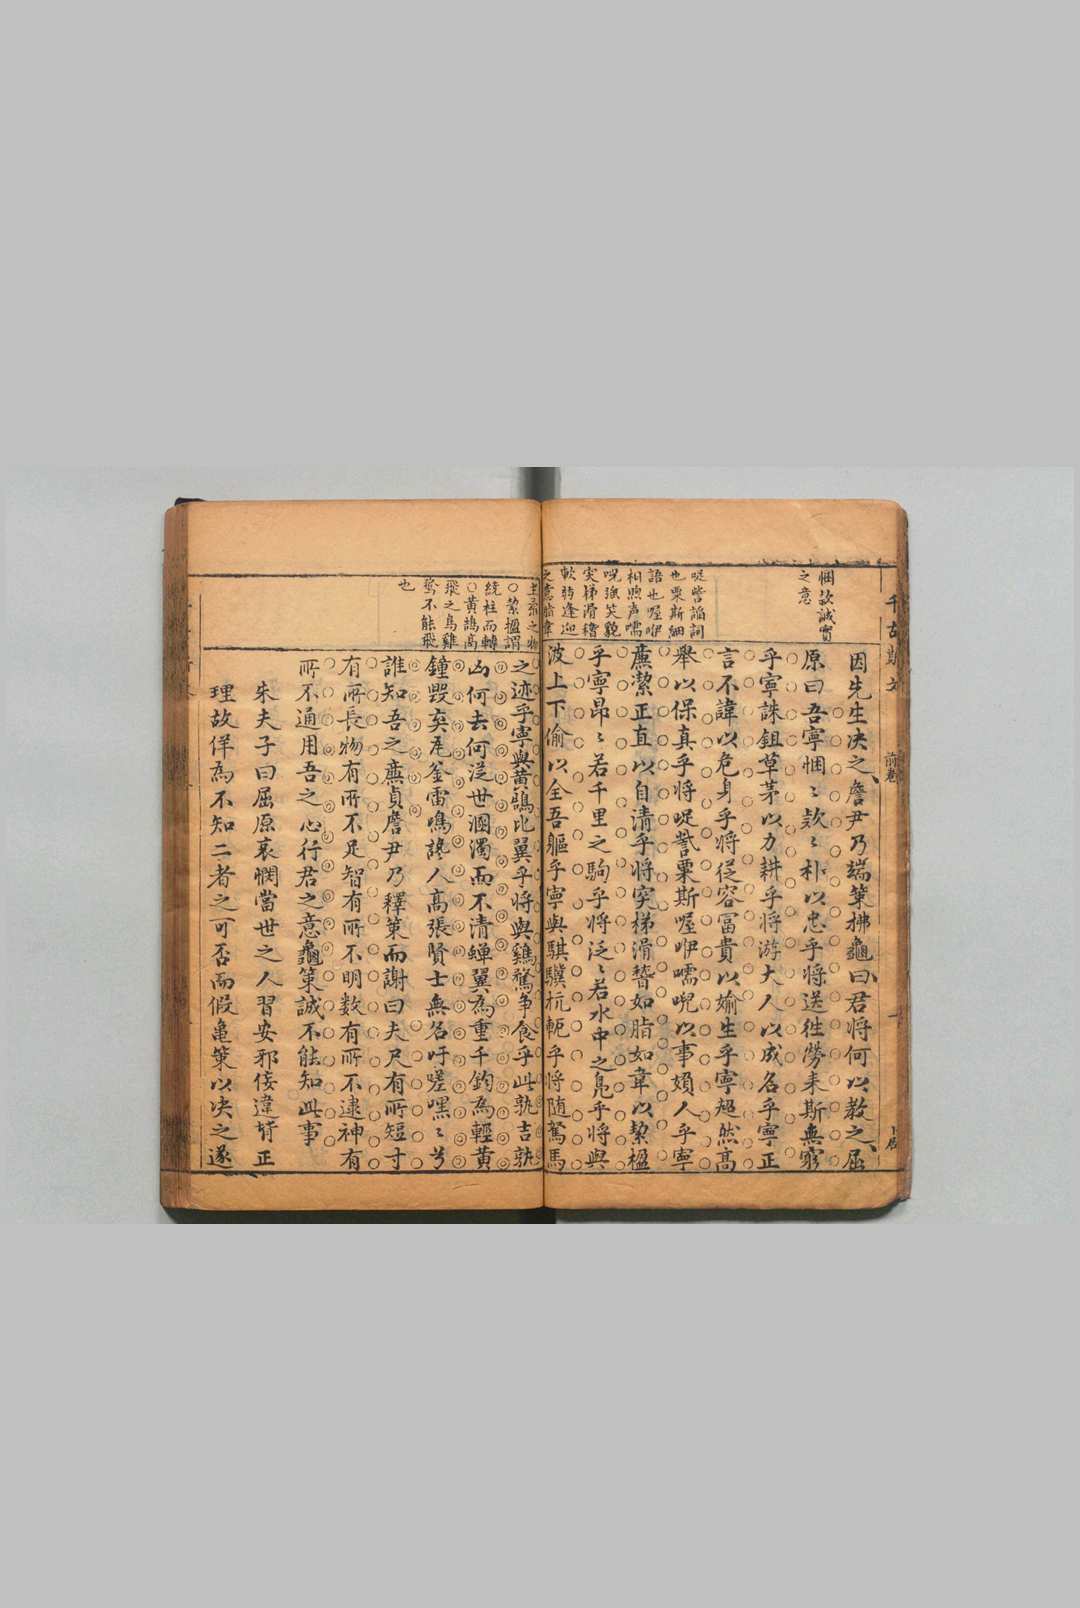 千古斯文
前卷
卜居
悃款誠實
之意
哫訾謟詞
也栗斯細
語也喔咿
相煦声嚅
唲強笑貌
突梯滑稽
軟弱逢迎
因先生决之詹尹乃端策拂龜曰君将何以教之屈
原曰吾寧悃〻款〻朴以忠乎将送徃勞来斯無窮
乎寧誅鉏草茅以力耕乎将游大人以成名乎寧正
言不諱以危身乎将従容冨貴以媮生乎寧超然高
舉以保真乎将哫訾栗斯喔咿嚅唲以事婦人乎寧
廉潔正直以自清乎将突梯滑稽如脂如韋以絜楹
乎寧昂〻若千里之駒乎将泛〻若水中之鳬乎将與
波上下偷以全吾軀乎寧與騏驥抗軛乎将随駑馬
○絜楹謂
統柱而轉
○黄鵠高
飛之鳥雞
鶩不能飛
也
之迹乎寧與黄鵠比翼乎将與鷄鶩争食乎此孰吉孰
凶何去何従世溷濁而不清蟬翼為重千鈞為輕黄
鐘毀棄瓦釜雷鳴讒人高張賢士無名吁嗟嘿〻兮
誰知吾之廉貞詹尹乃釋策而謝曰夫尺有所短寸
有所長物有所不足智有所不明数有所不逮神有
所不通用吾之心行君之意龜策誠不能知此事
朱夫子曰屈原哀憫當世之人習安邪佞違背正
理故佯為不知二者之可否而假亀策以决之遂